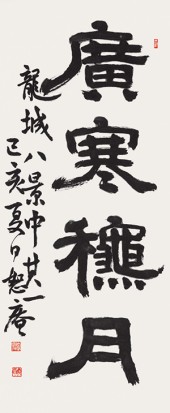 廣寒穐月
龍城八景中其一
己亥夏日恕庵